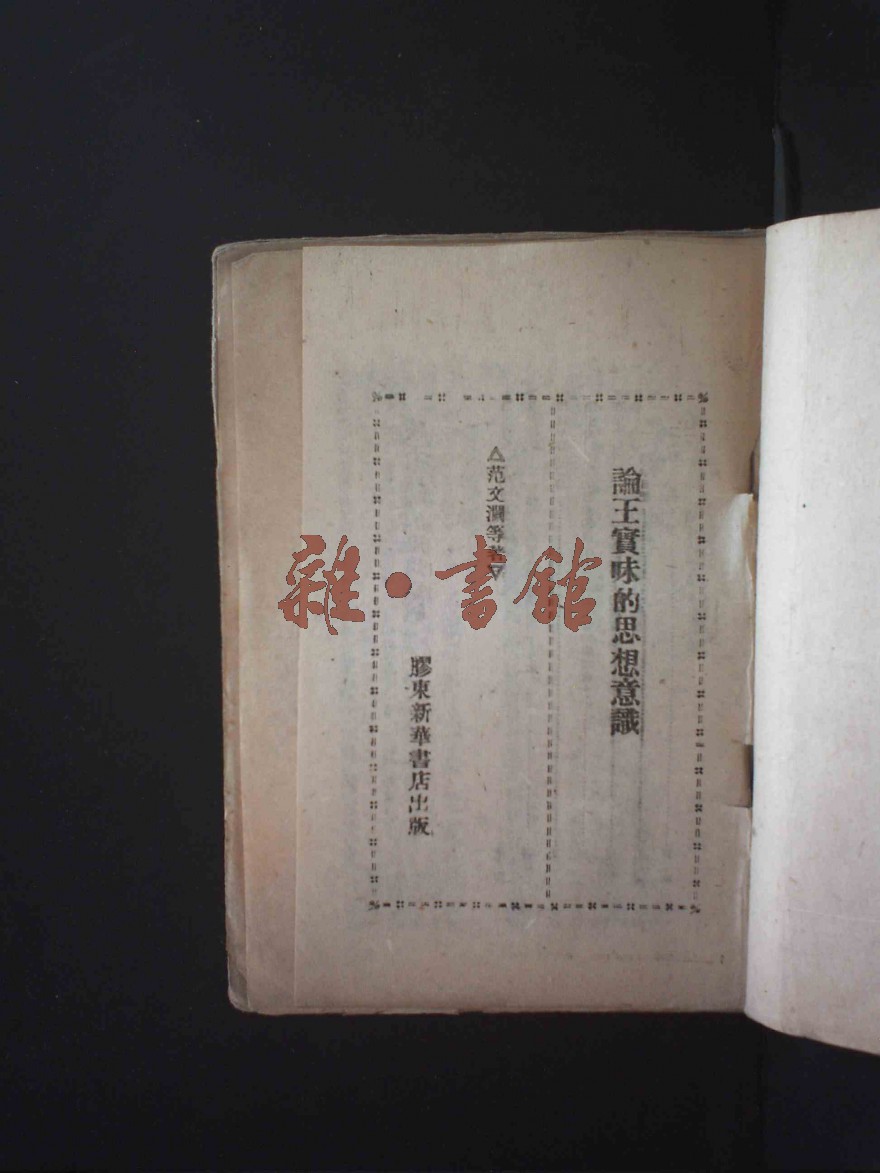 論王實味的思想意識
△范文瀾等著▽
膠東新華書店出版
雜·書館